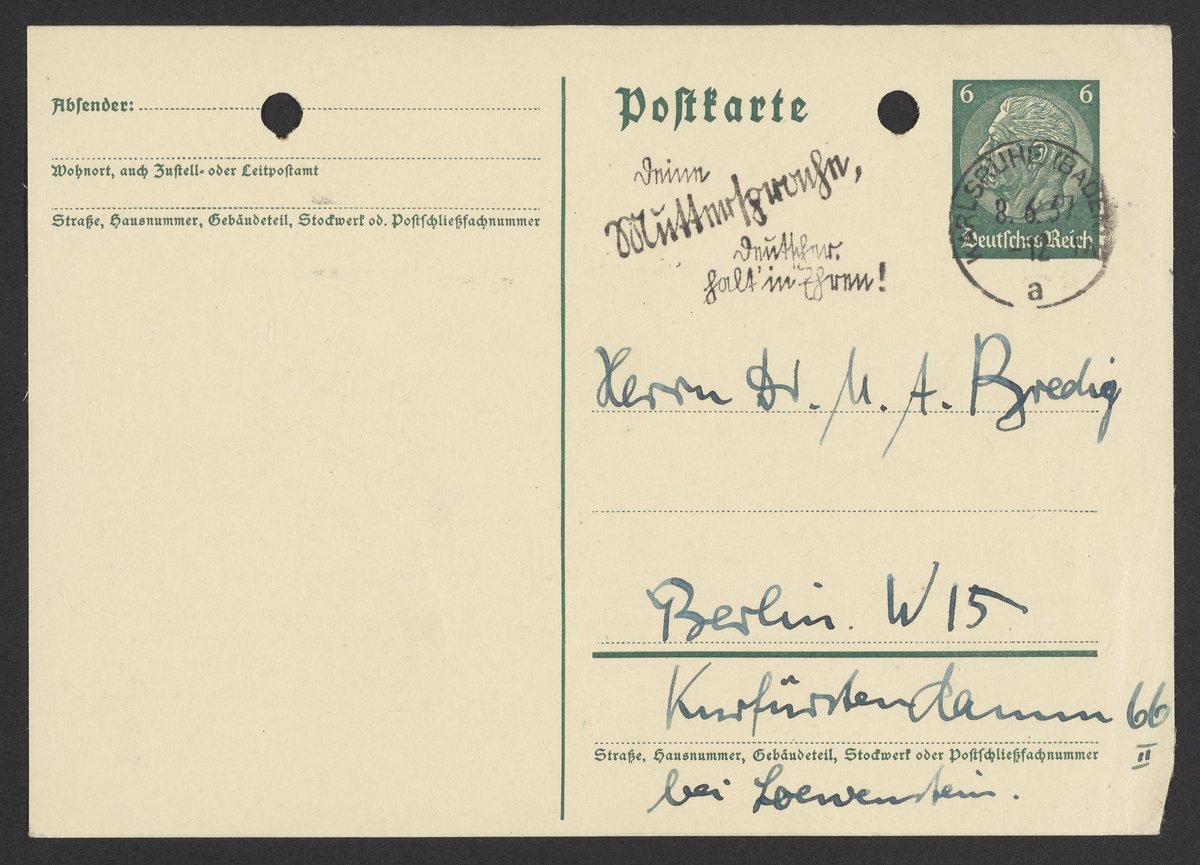 Absender:
Wohnort, auch Zustell- oder Leitpostamt
Straße, Hausnummer, Gebäudeteil, Stockwerk od. Postschließfachnummer
Postkarte
Deine
Muttersprache,
Deutscher,
halt' in Ehren!
6 6
Deutsches Reich
KARLSRUHE (BADEN)
8. 6. 37
12
a
Herrn Dr. M. A. Bredig
Berlin. W 15
Kurfürstendamm 66
II
Straße, Hausnummer, Gebäudeteil, Stockwerk oder Postschließfachnummer
bei Loewenstein.